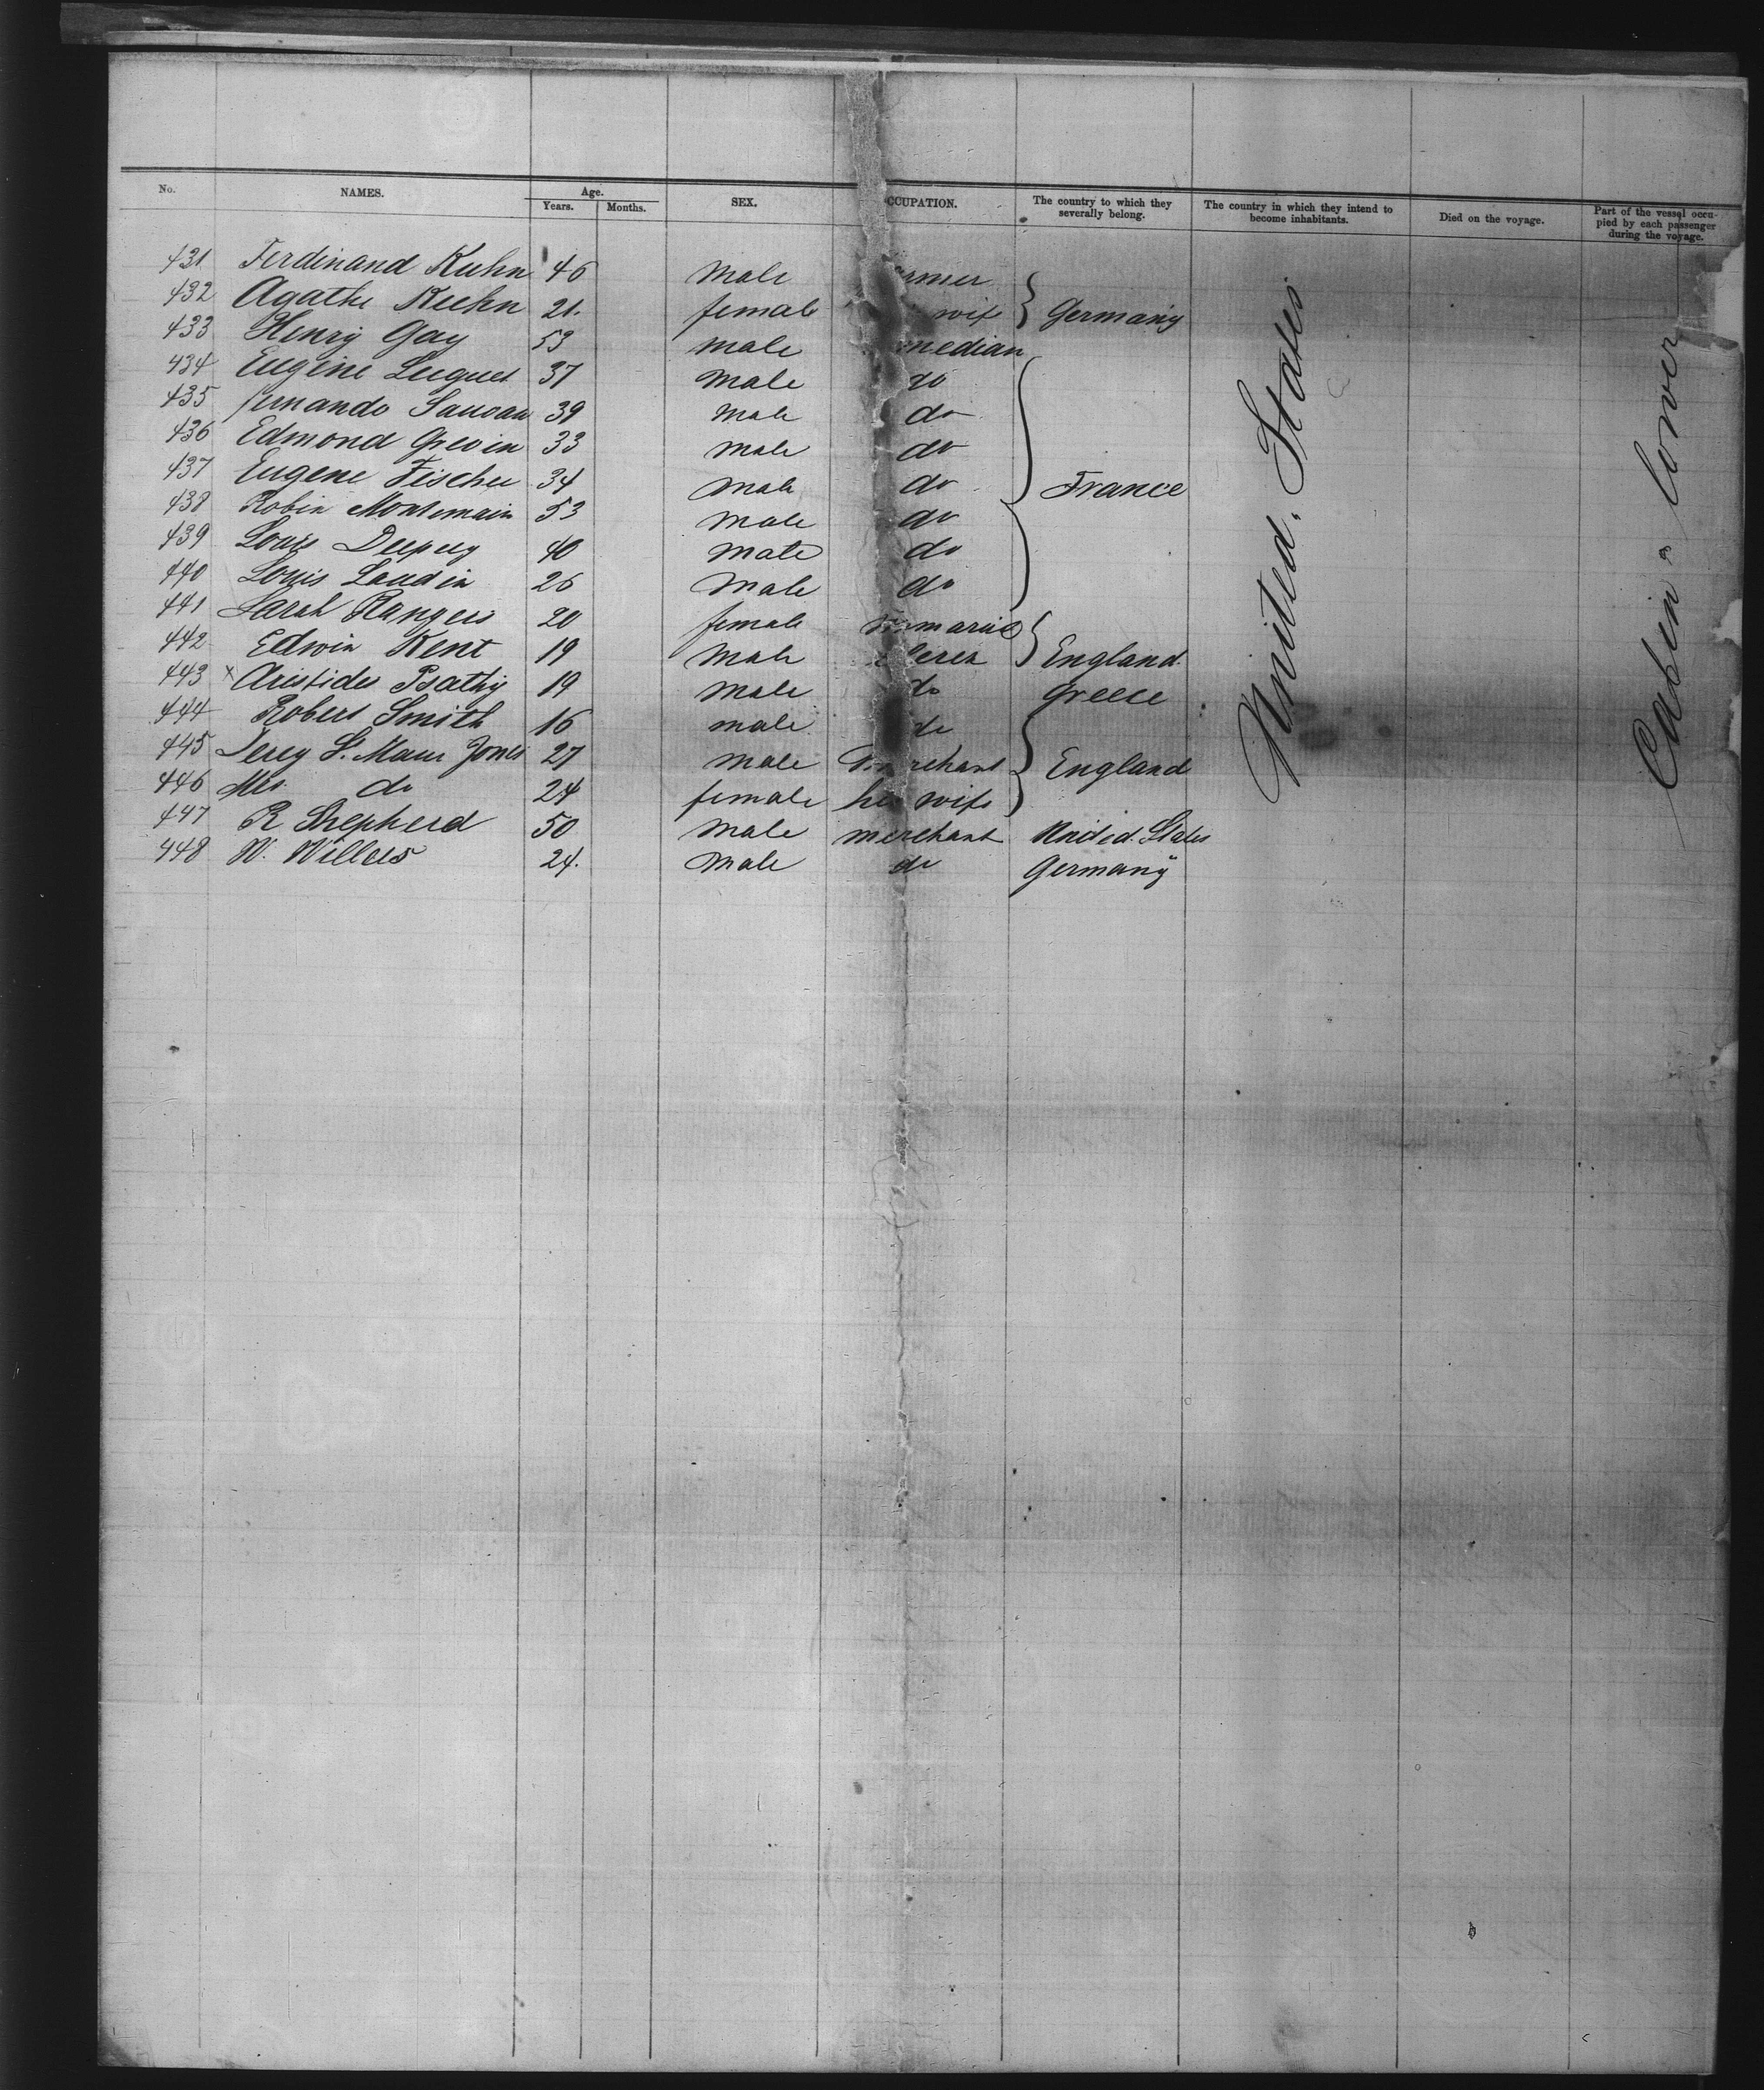 No. NAMES. Age. Years. Months. SEX. OCCUPATION. The country to which they severally belong. The country in which they intend to become inhabitants. Died on the voyage. Part of the vessel occupied by each passenger during the voyage.
431 Ferdinand Kuhn 46 male
432 Agathe Kuhn 21. female wife Germany
433 Henry Gay 53 male
434 Eugène 37 male do
435 Fernando 39 male do
436 Edmond Grevin 33 male do
437 Eugene 34 male do France
438 Robin 53 male do
439 Louis 40 male do
440 Louis Laudin 26 male do
441 Sarah 20 female
442 Edwin Kent 19 male England
443 x Aristides Psathy 19 male do Greece
444 Robert Smith 16 male do
445 Jones 27 male England
446 Mrs. do 24 female her wife
447 R Shepherd 50 male merchant United. States
448 W. Willers 24. male do Germany
United. States
Cabin